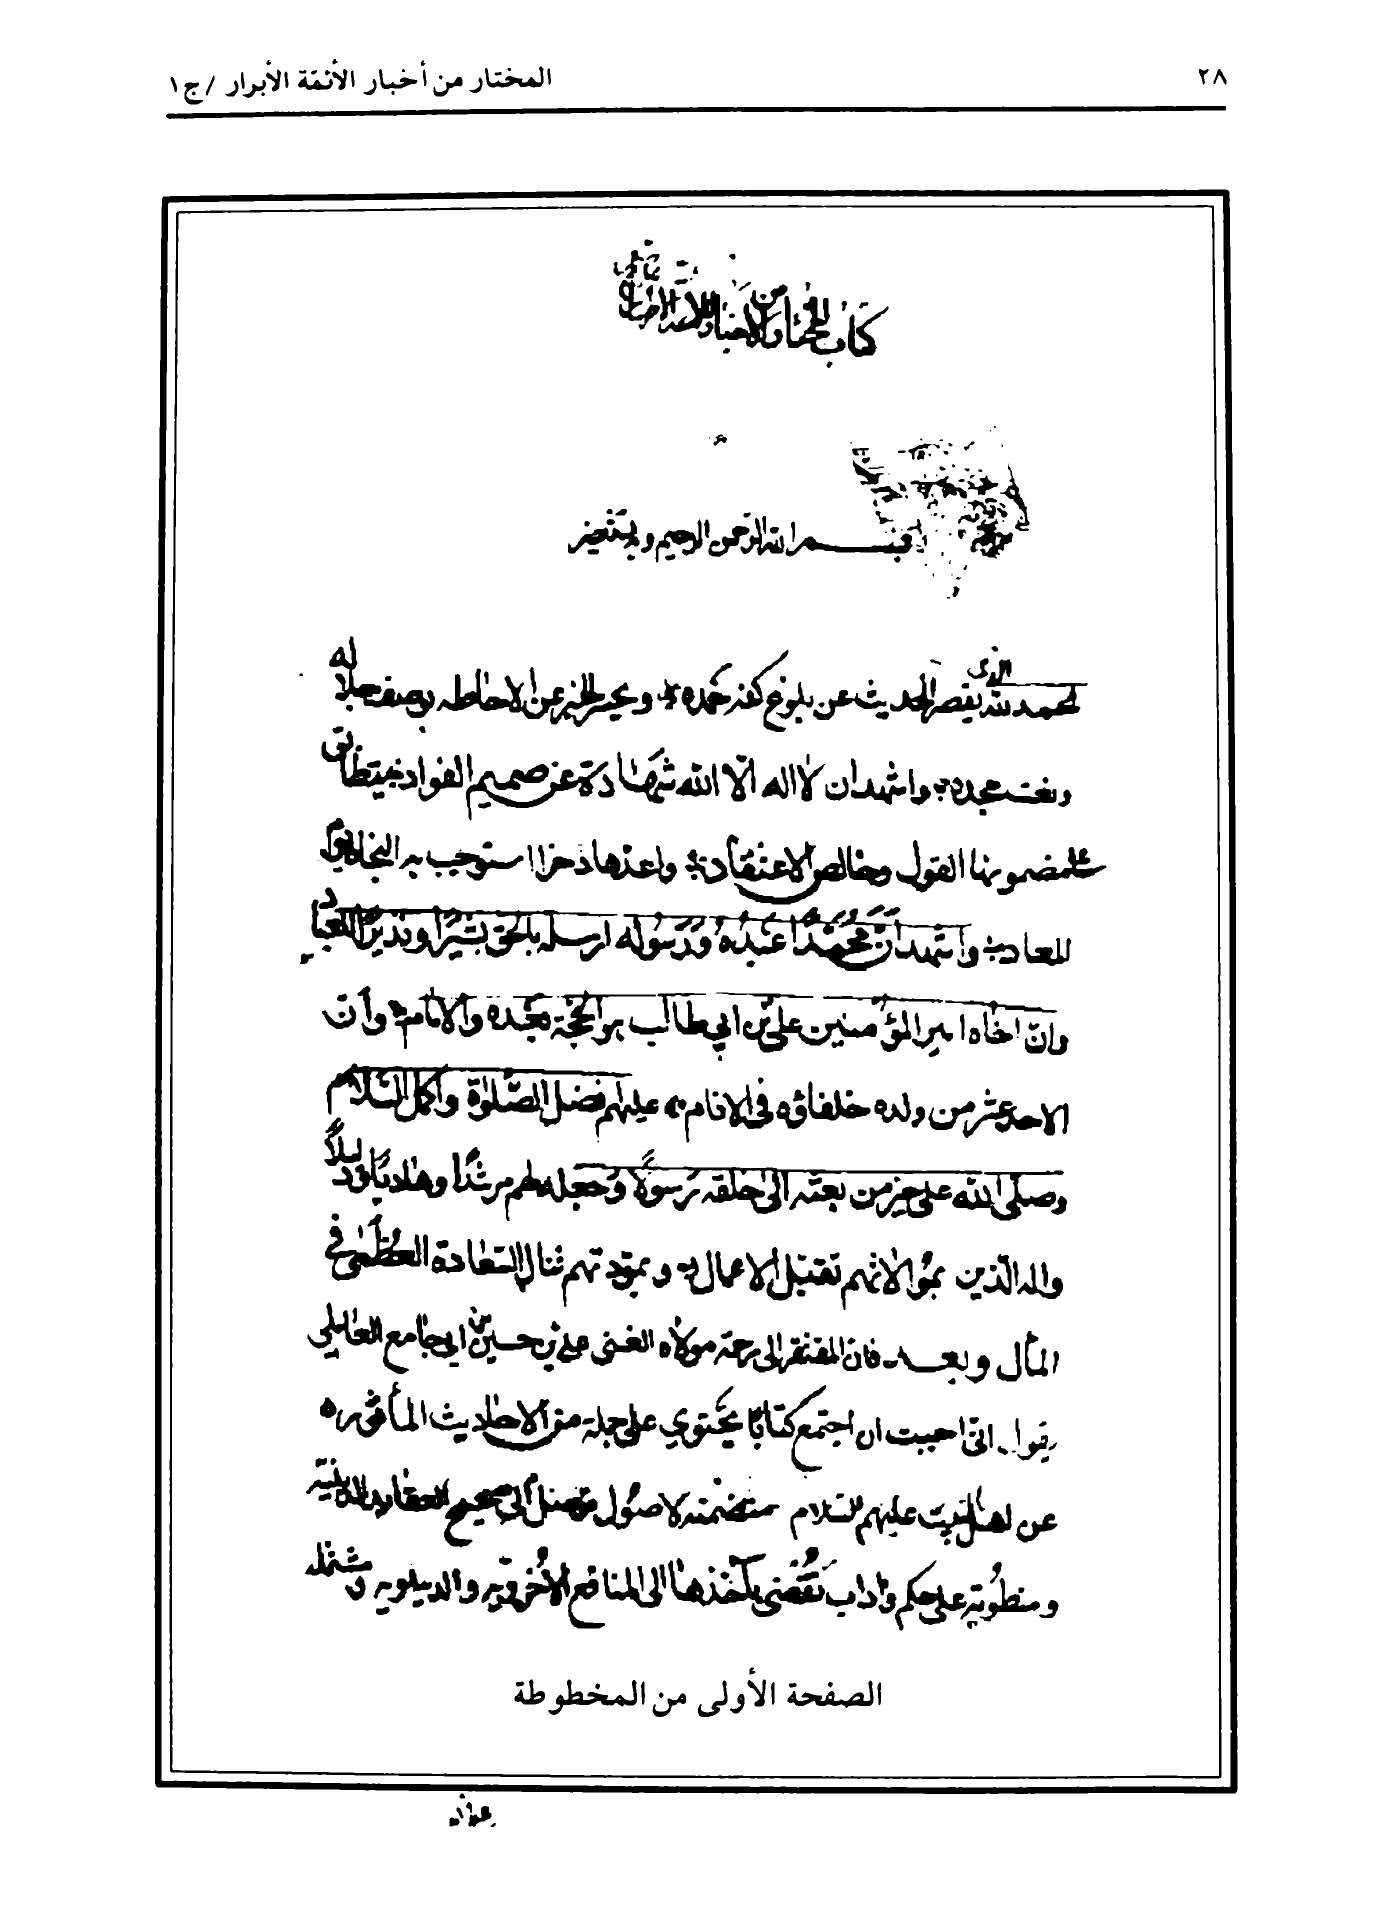 ٢٨
المختار من أخبار الأئمة الأبرار / ج١
كتاب المختار من الاخبار
بسم الله الرحمن الرحيم وبه نستعين
الحمد لله الذى يقصر الحديث عن بلوغ كنه حمده ويحسر الخبر عن الاحاطه بوصف جلاله
ونعت مجده واشهد ان لا اله الّا الله شهادة عن صميم الفواد يتطابق
على مضمونها القول وخالص الاعتقاد واعدها ذخرا استوجب به النجاة يوم
المعاد واشهد انّ محمّدًا عَبْدُهُ وَرَسُوله ارسله بالحق بشيرًا ونذيرًا للعباد
وانّ اخاه امير المؤمنين على بن ابي طالب هو الحجّة بَعْده والامام وانّ
الاحد عشر من ولده خلفاؤه في الانام عليهم افضل الصّلوٰة واكمل السّلام
وصلّى الله على خير من بعثه الى خلقه رَسولًا وجعله لهم مرشدًا وهاديًا ودليلًا
واله الّذين بمُوالاتهم تقبّل الاعمال وبمودتهم تنال السّعادة العُظمٰى في
المآل وبعد فان المفتقر الى رحمة مولاه الغنى على بن حسين بن ابي جامع العاملي
يقول انّى احببت ان اجمع كتابًا يحتوي على جملة من الاحاديث المأثوره
عن اهل البيت عليهم السلام متضمنه لاصُول صحيح العقايد الدينية
ومنطويه على حكم واداب تقضى بآخذها الى المنافع الأخرويه والدنيويه ومشتمله
الصفحة الأولى من المخطوطة